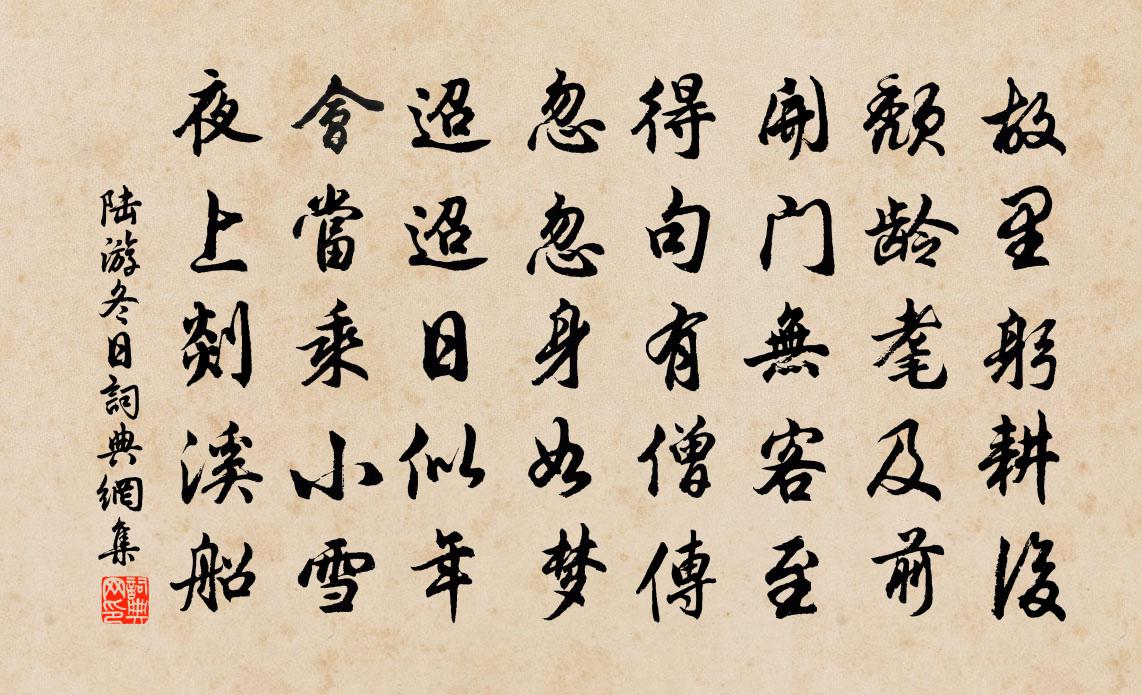 故里躬耕後
颓龄耄及前
開门無客至
得句有僧傳
忽忽身如梦
迢迢日似年
會當乘小雪
夜上剡溪船
陆游冬日詞典網集
詞典网印